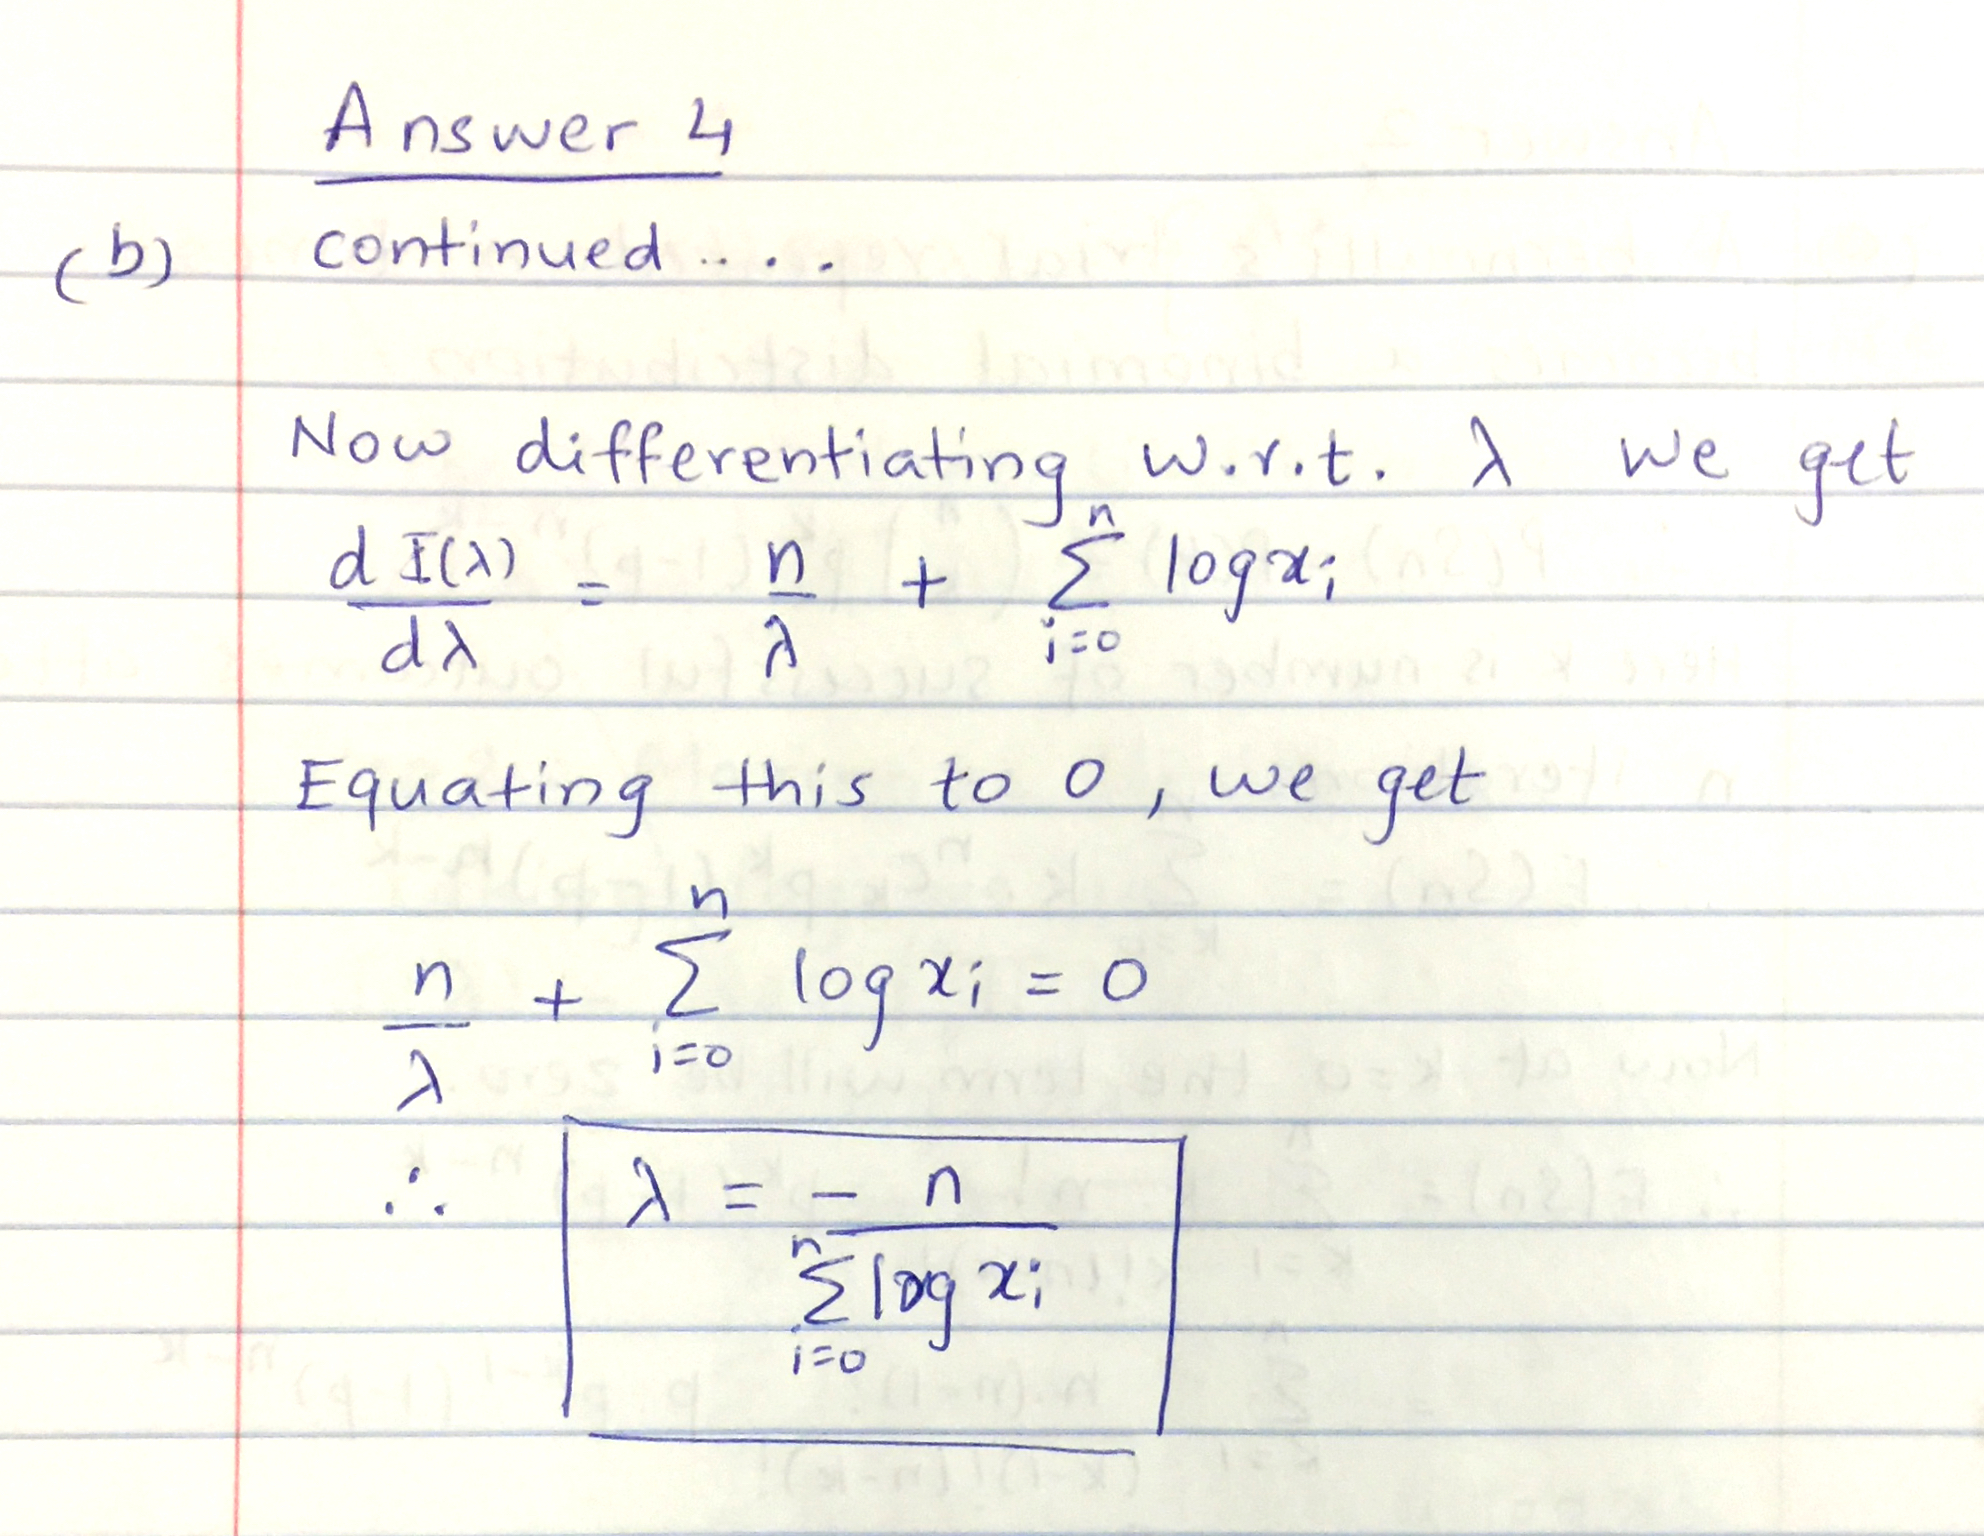 Answer 4
(b) continued ....
Now differentiating w.r.t. λ we get
d I(λ)/dλ = n/λ + ∑_{i=0}^{n} log xi
Equating this to 0, we get
n/λ + ∑_{i=0}^{n} log xi = 0
∴ λ = - n/∑_{i=0}^{n} log xi